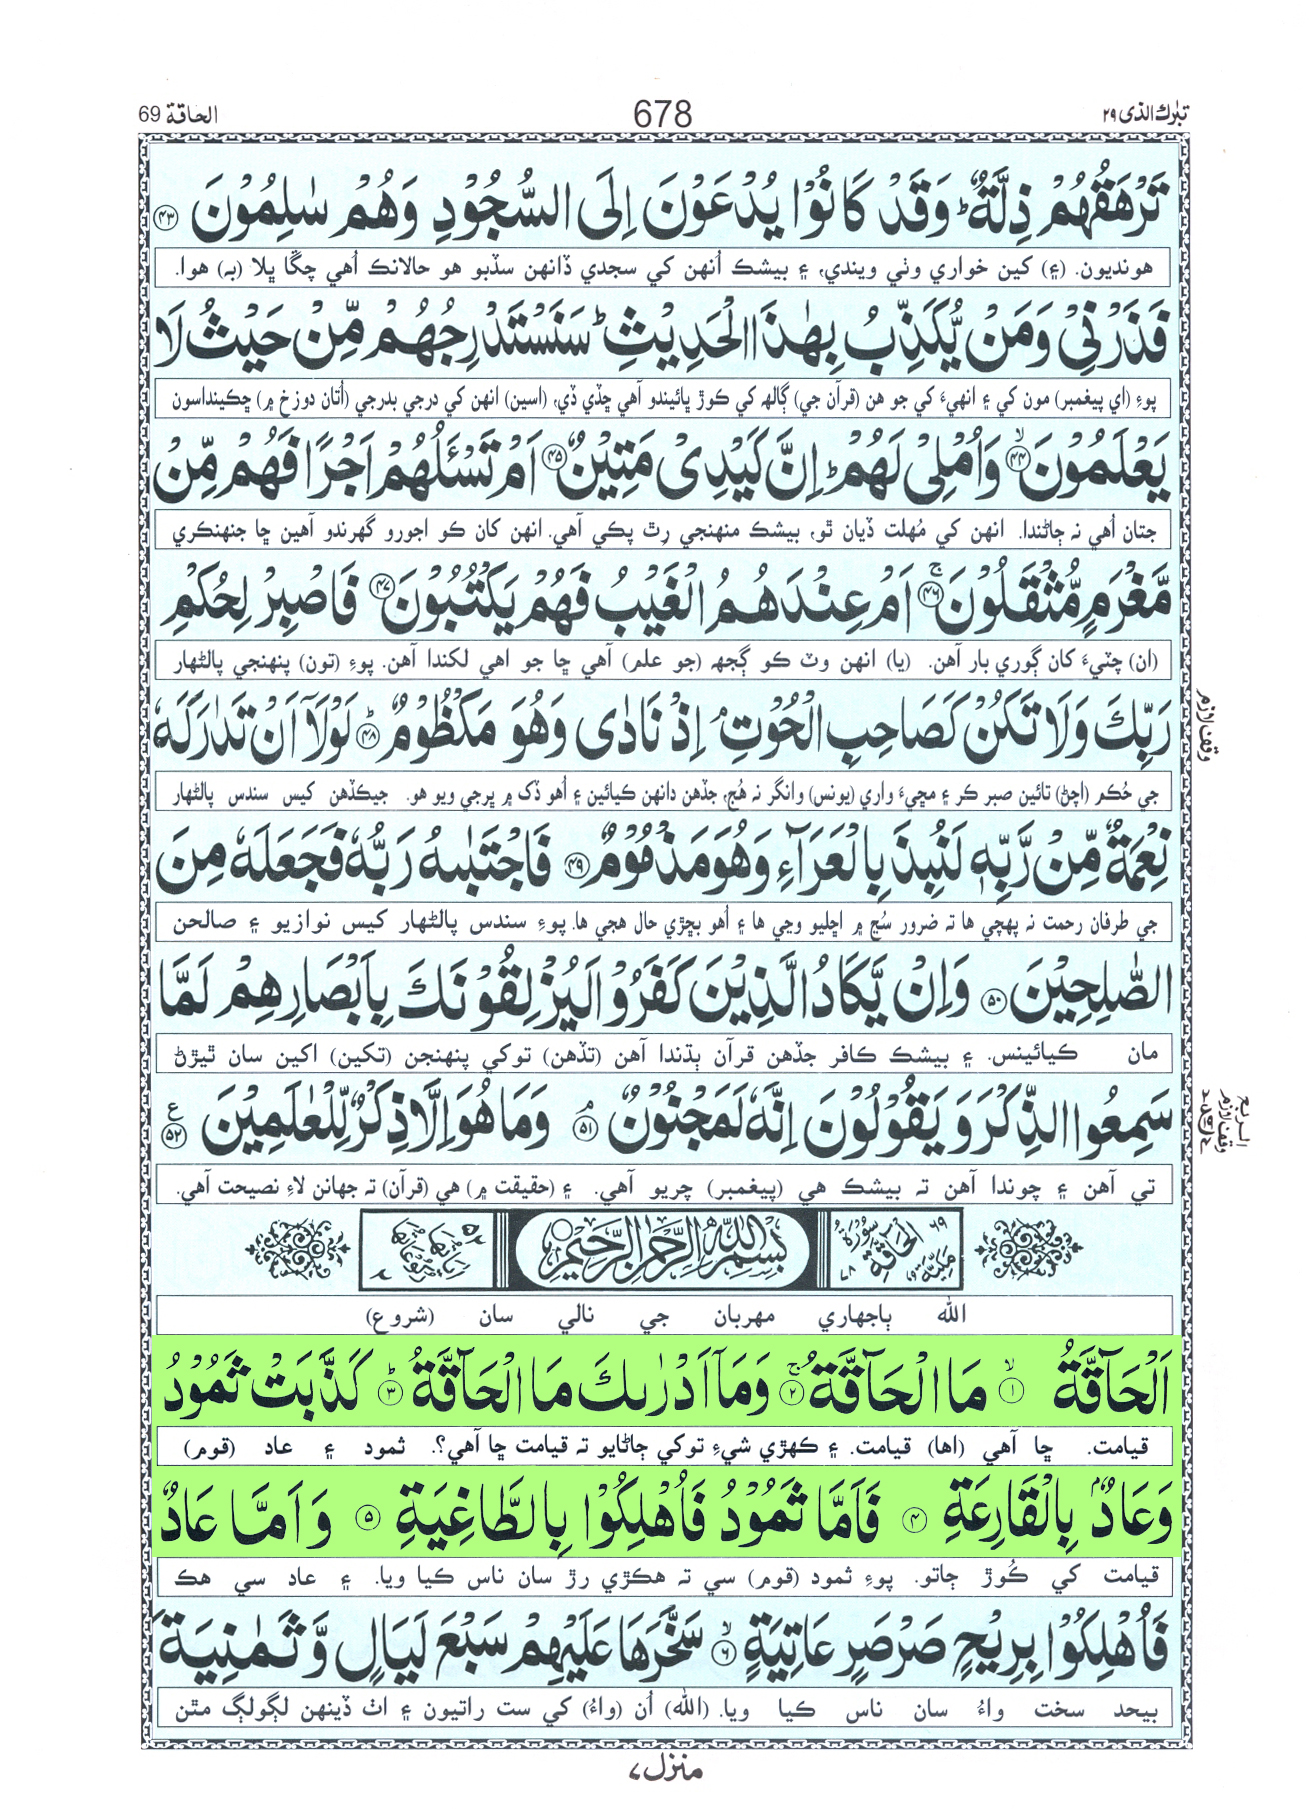 تبٰرك الذی ۲۹ 678 الحاقة 69
تَرْهَقُهُمْ ذِلَّةٌ ؕ وَقَدْ كَانُوْا يُدْعَوْنَ اِلَى السُّجُوْدِ وَهُمْ سٰلِمُوْنَ ﴿۴۳﴾
هونديون. (۽) کين خواري وٺي ويندي، ۽ بيشڪ اُنهن کي سجدي ڏانهن سڏبو هو حالانڪ اُهي چڱا ڀلا (بہ) هوا.
فَذَرْنِيْ وَمَنْ يُّكَذِّبُ بِهٰذَا الْحَدِيْثِ ؕ سَنَسْتَدْرِجُهُمْ مِّنْ حَيْثُ لَا
پوءِ (اي پيغمبر) مون کي ۽ انهيءَ کي جو هن (قرآن جي) ڳالھ کي ڪوڙ ڀائيندو آهي ڇڏي ڏي، (اسين) انهن کي درجي بدرجي (اُتان دوزخ ۾) ڇڪينداسون
يَعْلَمُوْنَ ﴿۴۴﴾ وَاُمْلِيْ لَهُمْ ؕ اِنَّ كَيْدِيْ مَتِيْنٌ ﴿۴۵﴾ اَمْ تَسْـَٔلُهُمْ اَجْرًا فَهُمْ مِّنْ
جتان اُهي نہ ڄاڻندا. انهن کي مُهلت ڏيان ٿو، بيشڪ منهنجي رِٿ پڪي آهي. انهن کان ڪو اجورو گهرندو آهين ڇا جنهنڪري
مَّغْرَمٍ مُّثْقَلُوْنَ ﴿۴۶﴾ اَمْ عِنْدَهُمُ الْغَيْبُ فَهُمْ يَكْتُبُوْنَ ﴿۴۷﴾ فَاصْبِرْ لِحُكْمِ
(ان) چٽيءَ کان ڳوري بار آهن. (يا) انهن وٽ ڪو ڳجھ (جو علم) آهي ڇا جو اهي لکندا آهن. پوءِ (تون) پنهنجي پالڻهار
رَبِّكَ وَلَا تَكُنْ كَصَاحِبِ الْحُوْتِ ۘ اِذْ نَادٰى وَهُوَ مَكْظُوْمٌ ﴿۴۸﴾ لَوْلَاۤ اَنْ تَدٰرَكَهٗ
وقف لازم
جي حُڪم (اچڻ) تائين صبر ڪر ۽ مڇيءَ واري (يونس) وانگر نہ هُج، جڏهن دانهن ڪيائين ۽ اُهو ڏک ۾ ڀرجي ويو هو. جيڪڏهن کيس سندس پالڻهار
نِعْمَةٌ مِّنْ رَّبِّهٖ لَنُبِذَ بِالْعَرَآءِ وَهُوَ مَذْمُوْمٌ ﴿۴۹﴾ فَاجْتَبٰىهُ رَبُّهٗ فَجَعَلَهٗ مِنَ
جي طرفان رحمت نہ پهچي ها تہ ضرور سُڃ ۾ اڇليو وڃي ها ۽ اُهو بڇڙي حال هجي ها. پوءِ سندس پالڻهار کيس نوازيو ۽ صالحن
الصّٰلِحِيْنَ ﴿۵۰﴾ وَاِنْ يَّكَادُ الَّذِيْنَ كَفَرُوْا لَيُزْلِقُوْنَكَ بِاَبْصَارِهِمْ لَمَّا
مان ڪيائينس. ۽ بيشڪ ڪافر جڏهن قرآن ٻڌندا آهن (تڏهن) توکي پنهنجن (تکين) اکين سان ٿيڙڻ
سَمِعُوا الذِّكْرَ وَيَقُوْلُوْنَ اِنَّهٗ لَمَجْنُوْنٌ ۘ﴿۵۱﴾ وَمَا هُوَ اِلَّا ذِكْرٌ لِّلْعٰلَمِيْنَ ﴿۵۲﴾ ع
وقف لازم
تي آهن ۽ چوندا آهن تہ بيشڪ هي (پيغمبر) چريو آهي. ۽ (حقيقت ۾) هي (قرآن) تہ جهانن لاءِ نصيحت آهي.
۶۹ سُوْرَةُ الْحَآقَّةِ مَكِّيَّةٌ ۷۸ بِسْمِ اللّٰهِ الرَّحْمٰنِ الرَّحِيْمِ اٰيَاتُهَا ۵۲ رُكُوْعَاتُهَا ۲
الله ٻاجهاري مهربان جي نالي سان (شروع)
اَلْحَآقَّةُ ﴿۱﴾ مَا الْحَآقَّةُ ﴿۲﴾ وَمَاۤ اَدْرٰىكَ مَا الْحَآقَّةُ ﴿۳﴾ كَذَّبَتْ ثَمُوْدُ
قيامت. ڇا آهي (اها) قيامت. ۽ ڪهڙي شيءِ توکي ڄاڻايو تہ قيامت ڇا آهي؟. ثمود ۽ عاد (قوم)
وَعَادٌۢ بِالْقَارِعَةِ ﴿۴﴾ فَاَمَّا ثَمُوْدُ فَاُهْلِكُوْا بِالطَّاغِيَةِ ﴿۵﴾ وَاَمَّا عَادٌ
قيامت کي ڪُوڙ ڄاتو. پوءِ ثمود (قوم) سي تہ هڪڙي رڙ سان ناس ڪيا ويا. ۽ عاد سي هڪ
فَاُهْلِكُوْا بِرِيْحٍ صَرْصَرٍ عَاتِيَةٍ ﴿۶﴾ سَخَّرَهَا عَلَيْهِمْ سَبْعَ لَيَالٍ وَّثَمٰنِيَةَ
بيحد سخت واءُ سان ناس ڪيا ويا. (الله) اُن (واءُ) کي ست راتيون ۽ اٺ ڏينهن لڳولڳ مٿن
منزل ۷